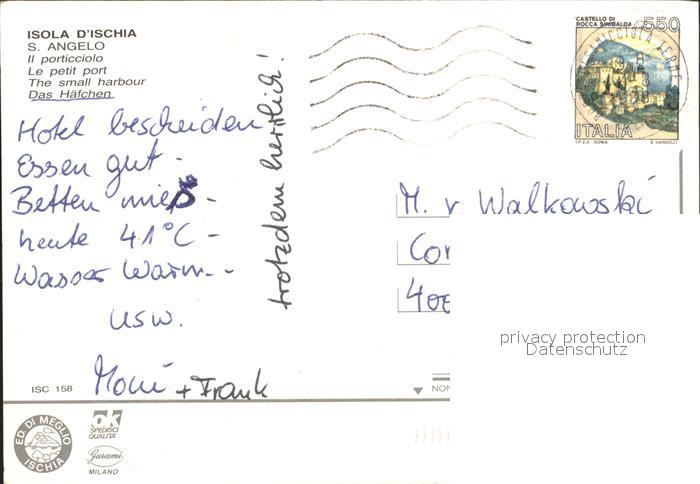 ISOLA D'ISCHIA
S. ANGELO
Il porticciolo
Le petit port
The small harbour
Das Häfchen
Hotel bescheiden
Essen gut -
Betten mies -
heute 41°C -
Wasser warm - -
usw.
Moni + Frank
trotzdem herrlich!
CASTELLO DI
ROCCA SINIBALDA 550
ITALIA
I.P.Z.S. ROMA E. VANGELLI
CASAMICCIOLA TERME
M. v. Walkowski
Cor
400
privacy protection
Datenschutz
ISC 158
NON
ED. DI MEGLIO
ISCHIA
OK
SPEDISCI
QUALITA'
Garami
MILANO